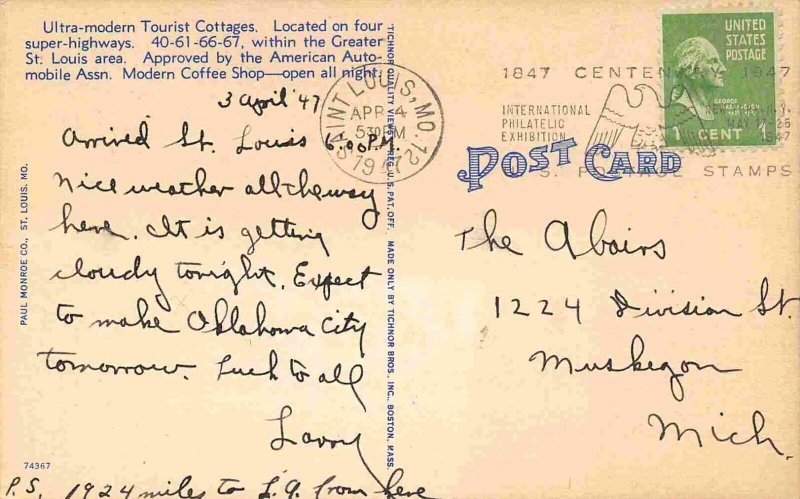 Ultra-modern Tourist Cottages. Located on four
super-highways. 40-61-66-67, within the Greater
St. Louis area. Approved by the American Auto-
mobile Assn. Modern Coffee Shop—open all night.
3 April '47
Arrived St. Louis 6:00 P.M.
Nice weather all the way
here. It is getting
cloudy tonight. Expect
to make Oklahoma City
tomorrow. Luck to all
Larry
P.S. 1924 miles to L.A. from here
74367
PAUL MONROE CO., ST. LOUIS, MO.
TICHNOR QUALITY VIEWS REG. U.S. PAT. OFF. MADE ONLY BY TICHNOR BROS. INC., BOSTON, MASS.
SAINT LOUIS, MO. 12
APR 4
530 PM
1947
1847 CENTENARY 1947
INTERNATIONAL
PHILATELIC
EXHIBITION
1947
POSTAGE STAMPS
UNITED
STATES
POSTAGE
GEORGE
WASHINGTON
1 CENT 1
POST CARD
The Abairs
1224 Division St.
Muskegon
Mich.